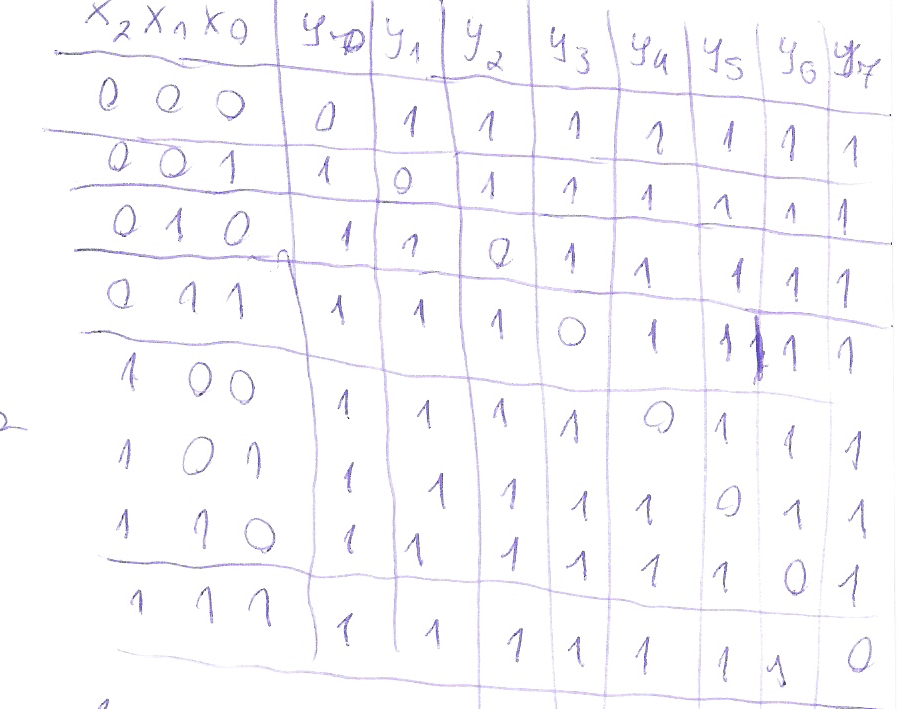 x2 x1 x0 y0 y1 y2 y3 y4 y5 y6 y7
0 0 0 0 1 1 1 1 1 1 1
0 0 1 1 0 1 1 1 1 1 1
0 1 0 1 1 0 1 1 1 1 1
0 1 1 1 1 1 0 1 1 1 1
1 0 0 1 1 1 1 0 1 1 1
1 0 1 1 1 1 1 1 0 1 1
1 1 0 1 1 1 1 1 1 0 1
1 1 1 1 1 1 1 1 1 1 0